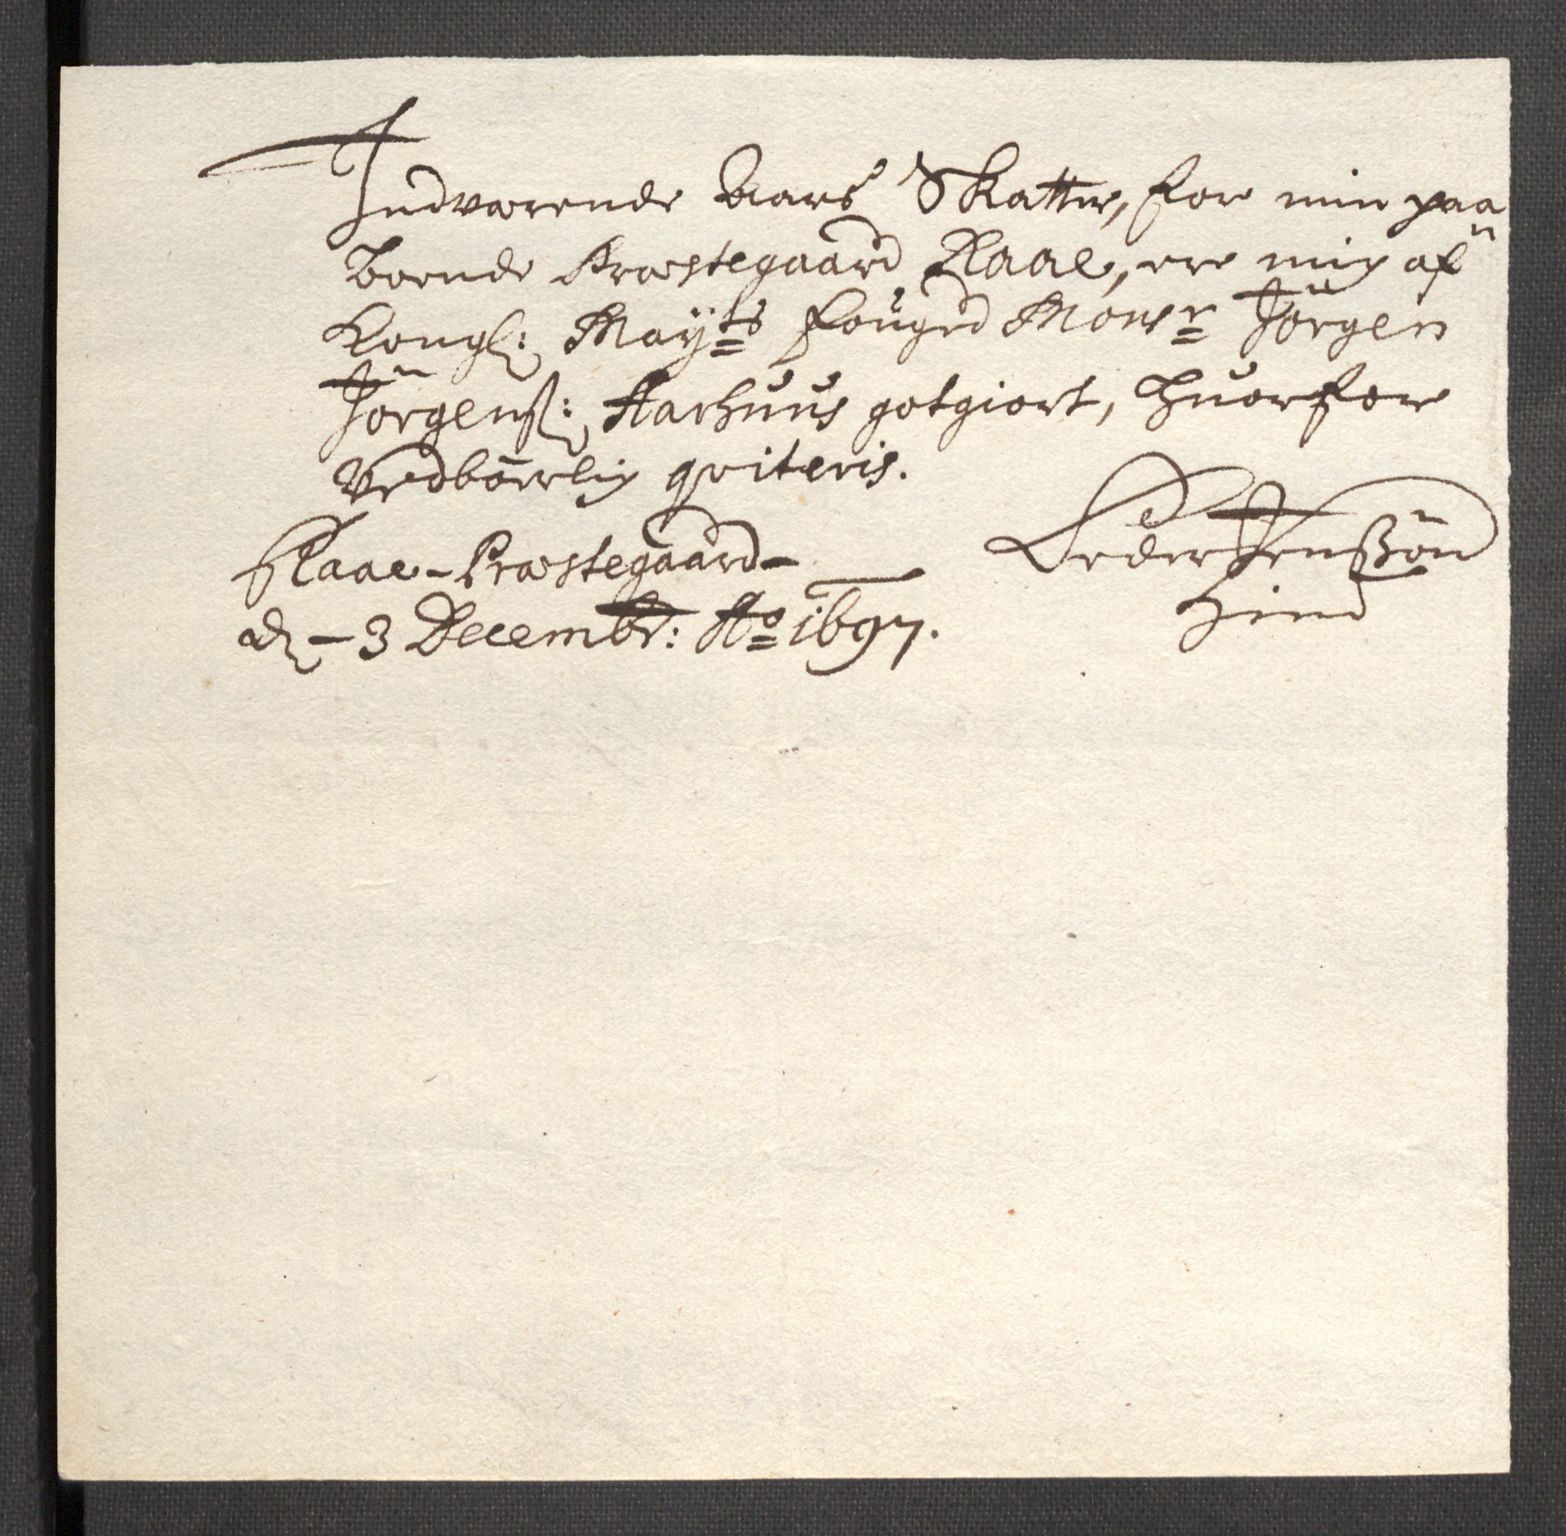 Indværende Aars Skatter, for min paa-
boende Præstegaard Raae, ere mig af
Kongl: Mayts fouged Monsr Jörgen
Jörgenß: Aarhuus gotgiort, huorfor
vedbörlig qviteris.
Raae-Præstegaard
d - 3 Decembr: Ao 1697.
Peder Jenßön
Hind